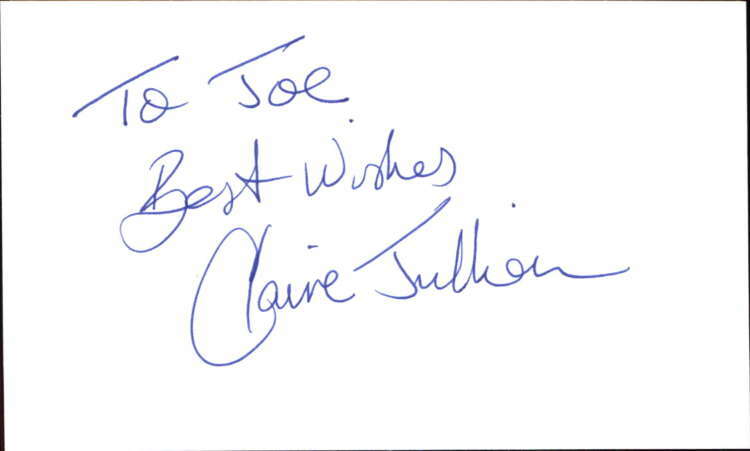 To Joe
Best Wishes
Claire Jullien